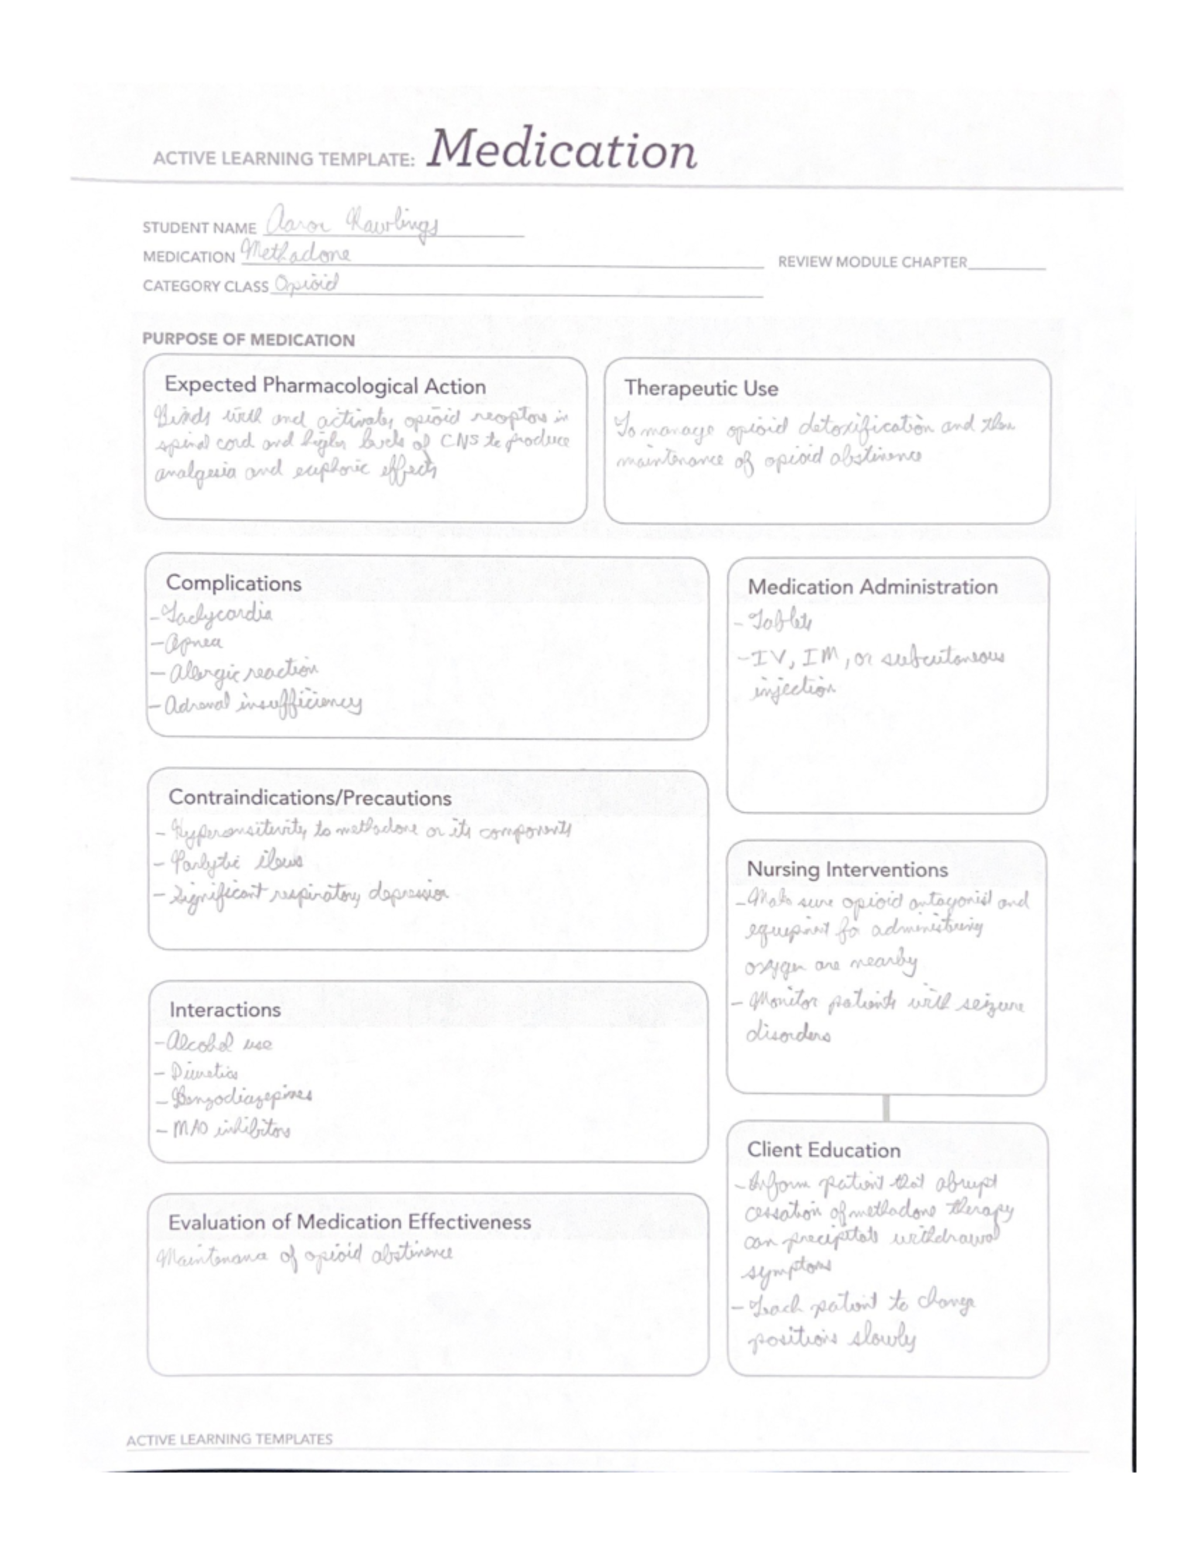 ACTIVE LEARNING TEMPLATE: Medication
STUDENT NAME Aaron Rawlings
MEDICATION Methadone
REVIEW MODULE CHAPTER
CATEGORY CLASS Opioid
PURPOSE OF MEDICATION
Expected Pharmacological Action
Binds with and activates opioid receptors in
spinal cord and higher levels of CNS to produce
analgesia and euphoric effects
Therapeutic Use
To manage opioid detoxification and then
maintenance of opioid abstinence
Complications
-Tachycardia
-Apnea
-Allergic reaction
-Adrenal insufficiency
Medication Administration
-Tablets
-IV, IM, or subcutaneous
injection
Contraindications/Precautions
-Hypersensitivity to methadone or its components
-Paralytic ileus
-Significant respiratory depression
Nursing Interventions
-Make sure opioid antagonist and
equipment for administering
oxygen are nearby
-Monitor patients with seizure
disorders
Interactions
-Alcohol use
-Diuretics
-Benzodiazepines
-MAO inhibitors
Client Education
-Inform patient that abrupt
cessation of methadone therapy
can precipitate withdrawal
symptoms
-Teach patient to change
positions slowly
Evaluation of Medication Effectiveness
Maintenance of opioid abstinence
ACTIVE LEARNING TEMPLATES